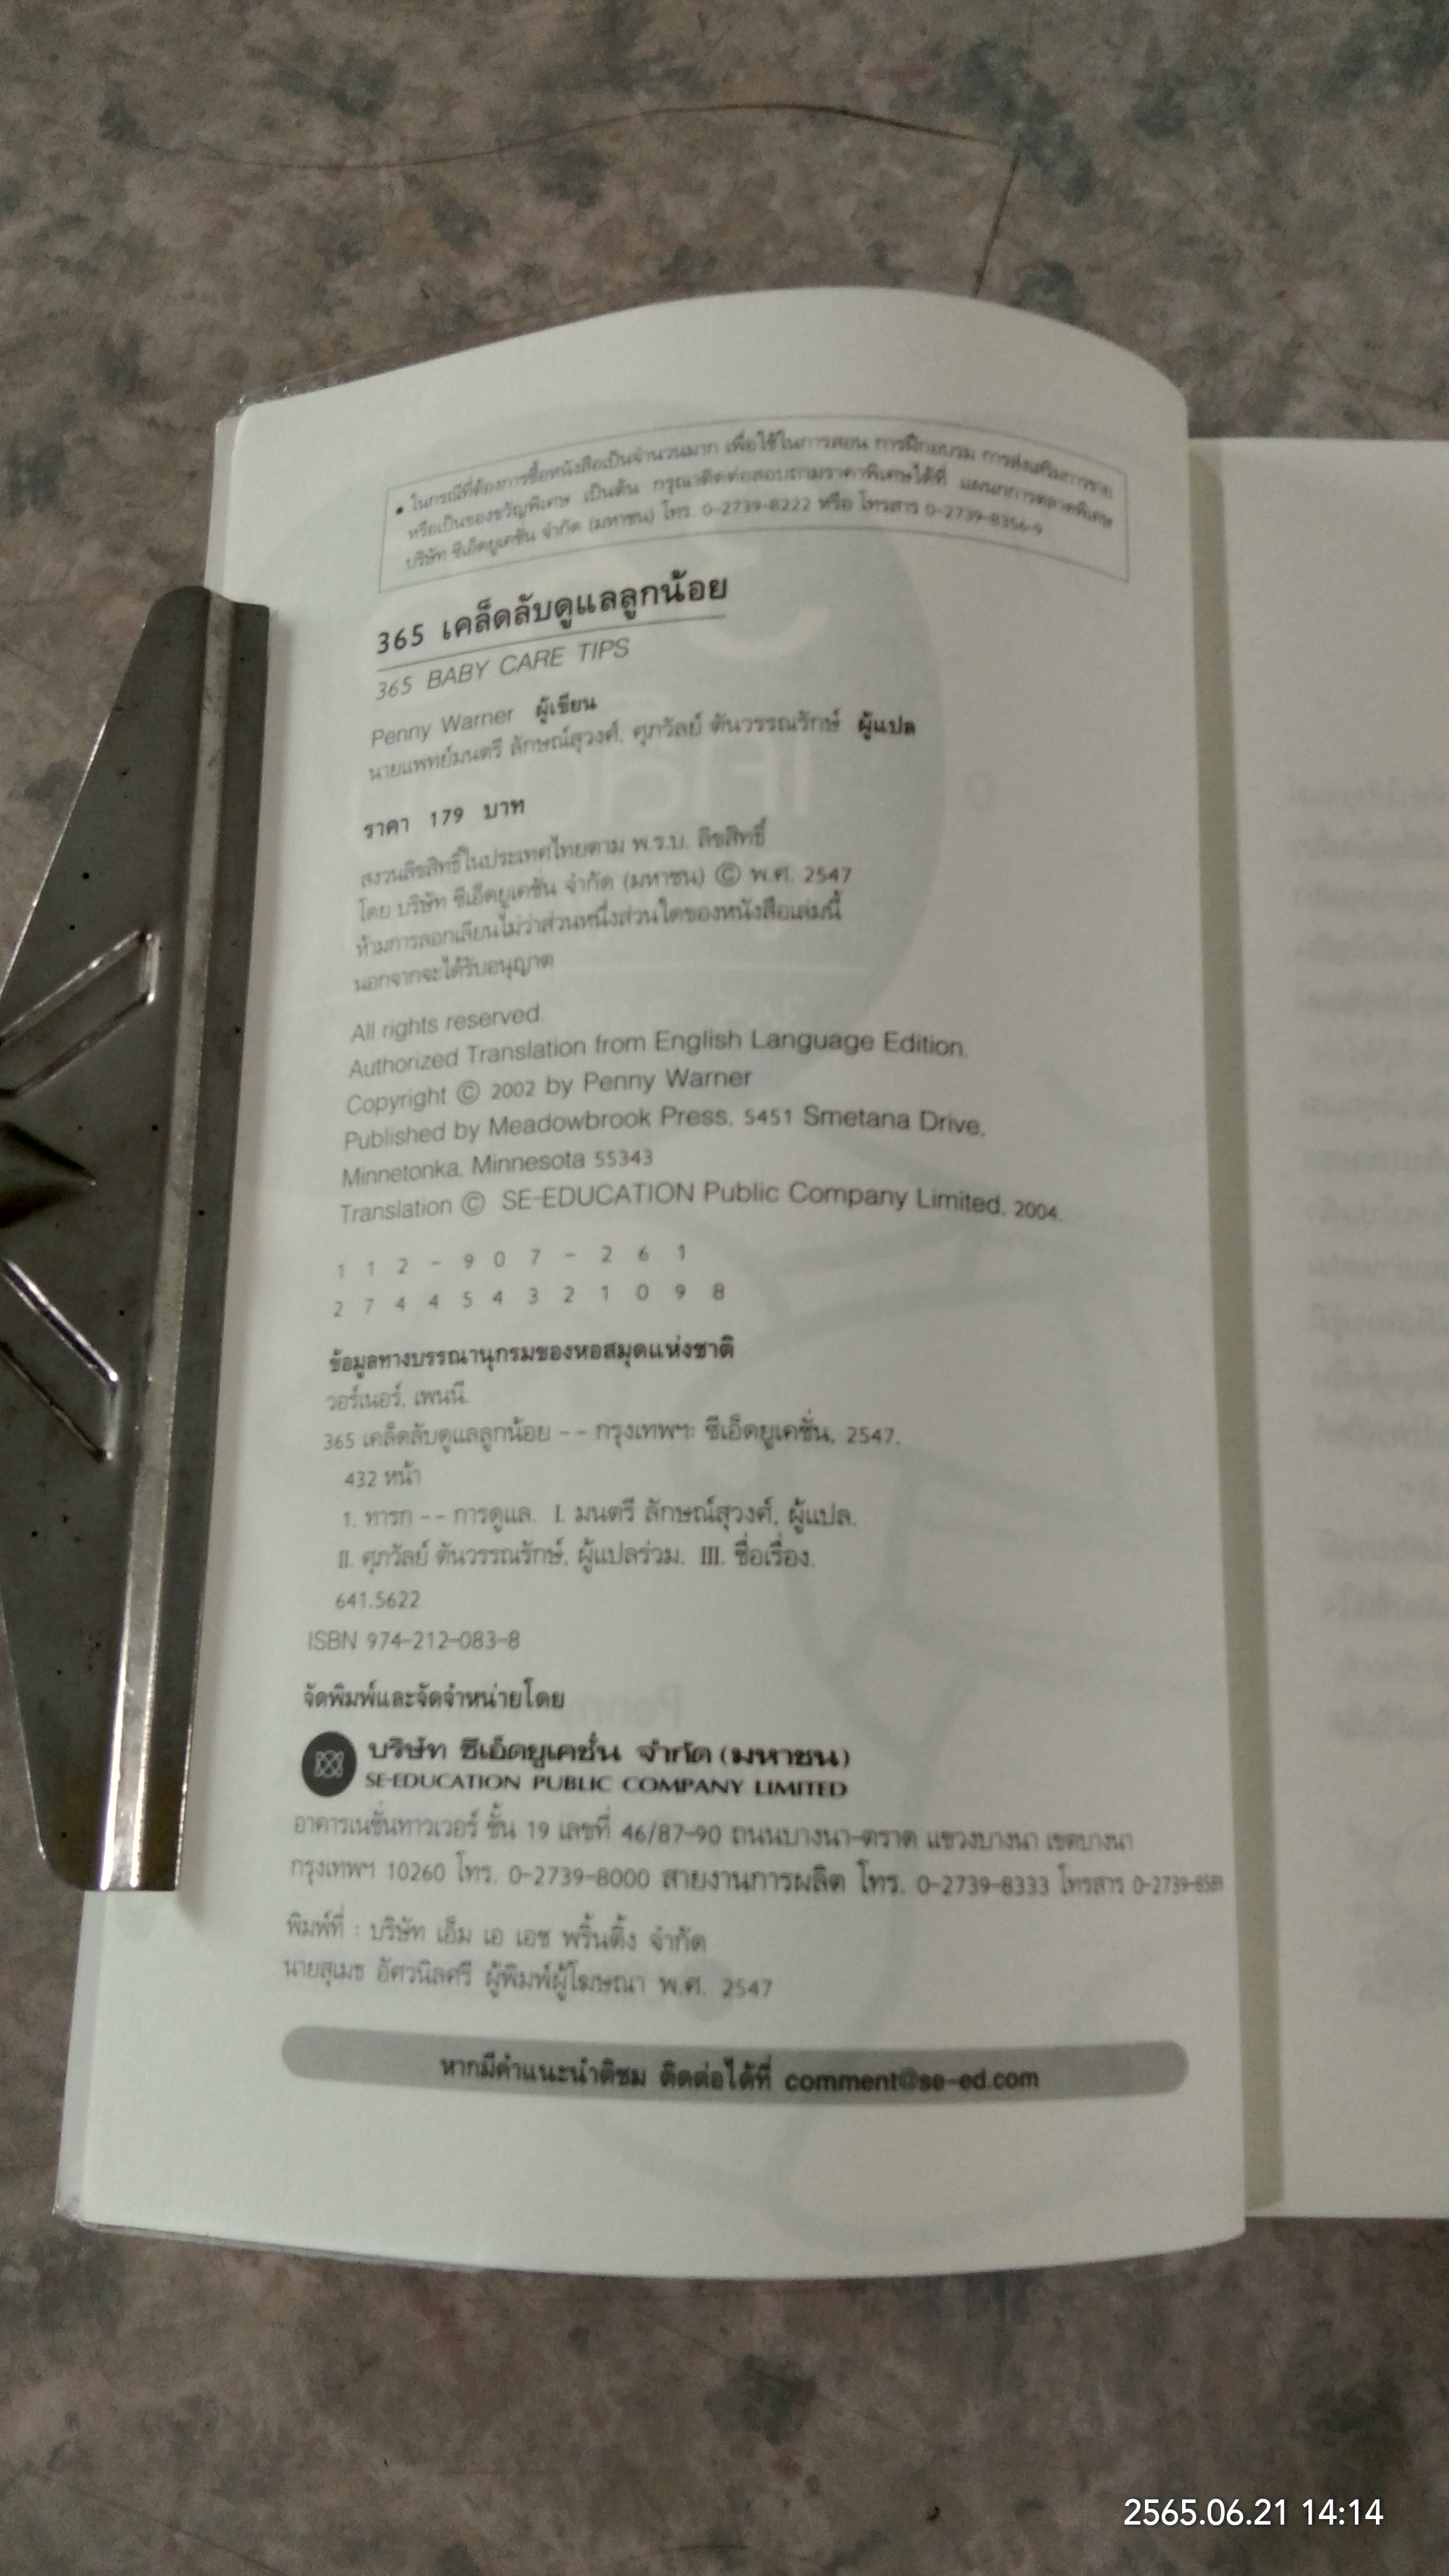 • ในกรณีที่ต้องการซื้อหนังสือเป็นจำนวนมาก เพื่อใช้ในการสอน การฝึกอบรม การส่งเสริมการขาย
หรือเป็นของขวัญพิเศษ เป็นต้น กรุณาติดต่อสอบถามราคาพิเศษได้ที่ แผนกการตลาดพิเศษ
บริษัท ซีเอ็ดยูเคชั่น จำกัด (มหาชน) โทร. 0-2739-8222 หรือ โทรสาร 0-2739-8356-9
365 เคล็ดลับดูแลลูกน้อย
365 BABY CARE TIPS
Penny Warner ผู้เขียน
นายแพทย์มนตรี ลักษณ์สุวงศ์, ศุภวัลย์ ตันวรรณรักษ์ ผู้แปล
ราคา 179 บาท
สงวนลิขสิทธิ์ในประเทศไทยตาม พ.ร.บ. ลิขสิทธิ์
โดย บริษัท ซีเอ็ดยูเคชั่น จำกัด (มหาชน) © พ.ศ. 2547
ห้ามการลอกเลียนไม่ว่าส่วนหนึ่งส่วนใดของหนังสือเล่มนี้
นอกจากจะได้รับอนุญาต
All rights reserved.
Authorized Translation from English Language Edition.
Copyright © 2002 by Penny Warner
Published by Meadowbrook Press, 5451 Smetana Drive,
Minnetonka, Minnesota 55343
Translation © SE-EDUCATION Public Company Limited, 2004.
1 1 2 - 9 0 7 - 2 6 1
2 7 4 4 5 4 3 2 1 0 9 8
ข้อมูลทางบรรณานุกรมของหอสมุดแห่งชาติ
วอร์เนอร์, เพนนี.
365 เคล็ดลับดูแลลูกน้อย -- กรุงเทพฯ: ซีเอ็ดยูเคชั่น, 2547.
432 หน้า
1. ทารก -- การดูแล. I. มนตรี ลักษณ์สุวงศ์, ผู้แปล.
II. ศุภวัลย์ ตันวรรณรักษ์, ผู้แปลร่วม. III. ชื่อเรื่อง.
641.5622
ISBN 974-212-083-8
จัดพิมพ์และจัดจำหน่ายโดย
บริษัท ซีเอ็ดยูเคชั่น จำกัด (มหาชน)
SE-EDUCATION PUBLIC COMPANY LIMITED
อาคารเนชั่นทาวเวอร์ ชั้น 19 เลขที่ 46/87-90 ถนนบางนา-ตราด แขวงบางนา เขตบางนา
กรุงเทพฯ 10260 โทร. 0-2739-8000 สายงานการผลิต โทร. 0-2739-8333 โทรสาร
พิมพ์ที่ : บริษัท เอ็ม เอ เอช พริ้นติ้ง จำกัด
นายสุเมธ อัศวนิลศรี ผู้พิมพ์ผู้โฆษณา พ.ศ. 2547
หากมีคำแนะนำติชม ติดต่อได้ที่ comment@se-ed.com
2565.06.21 14:14